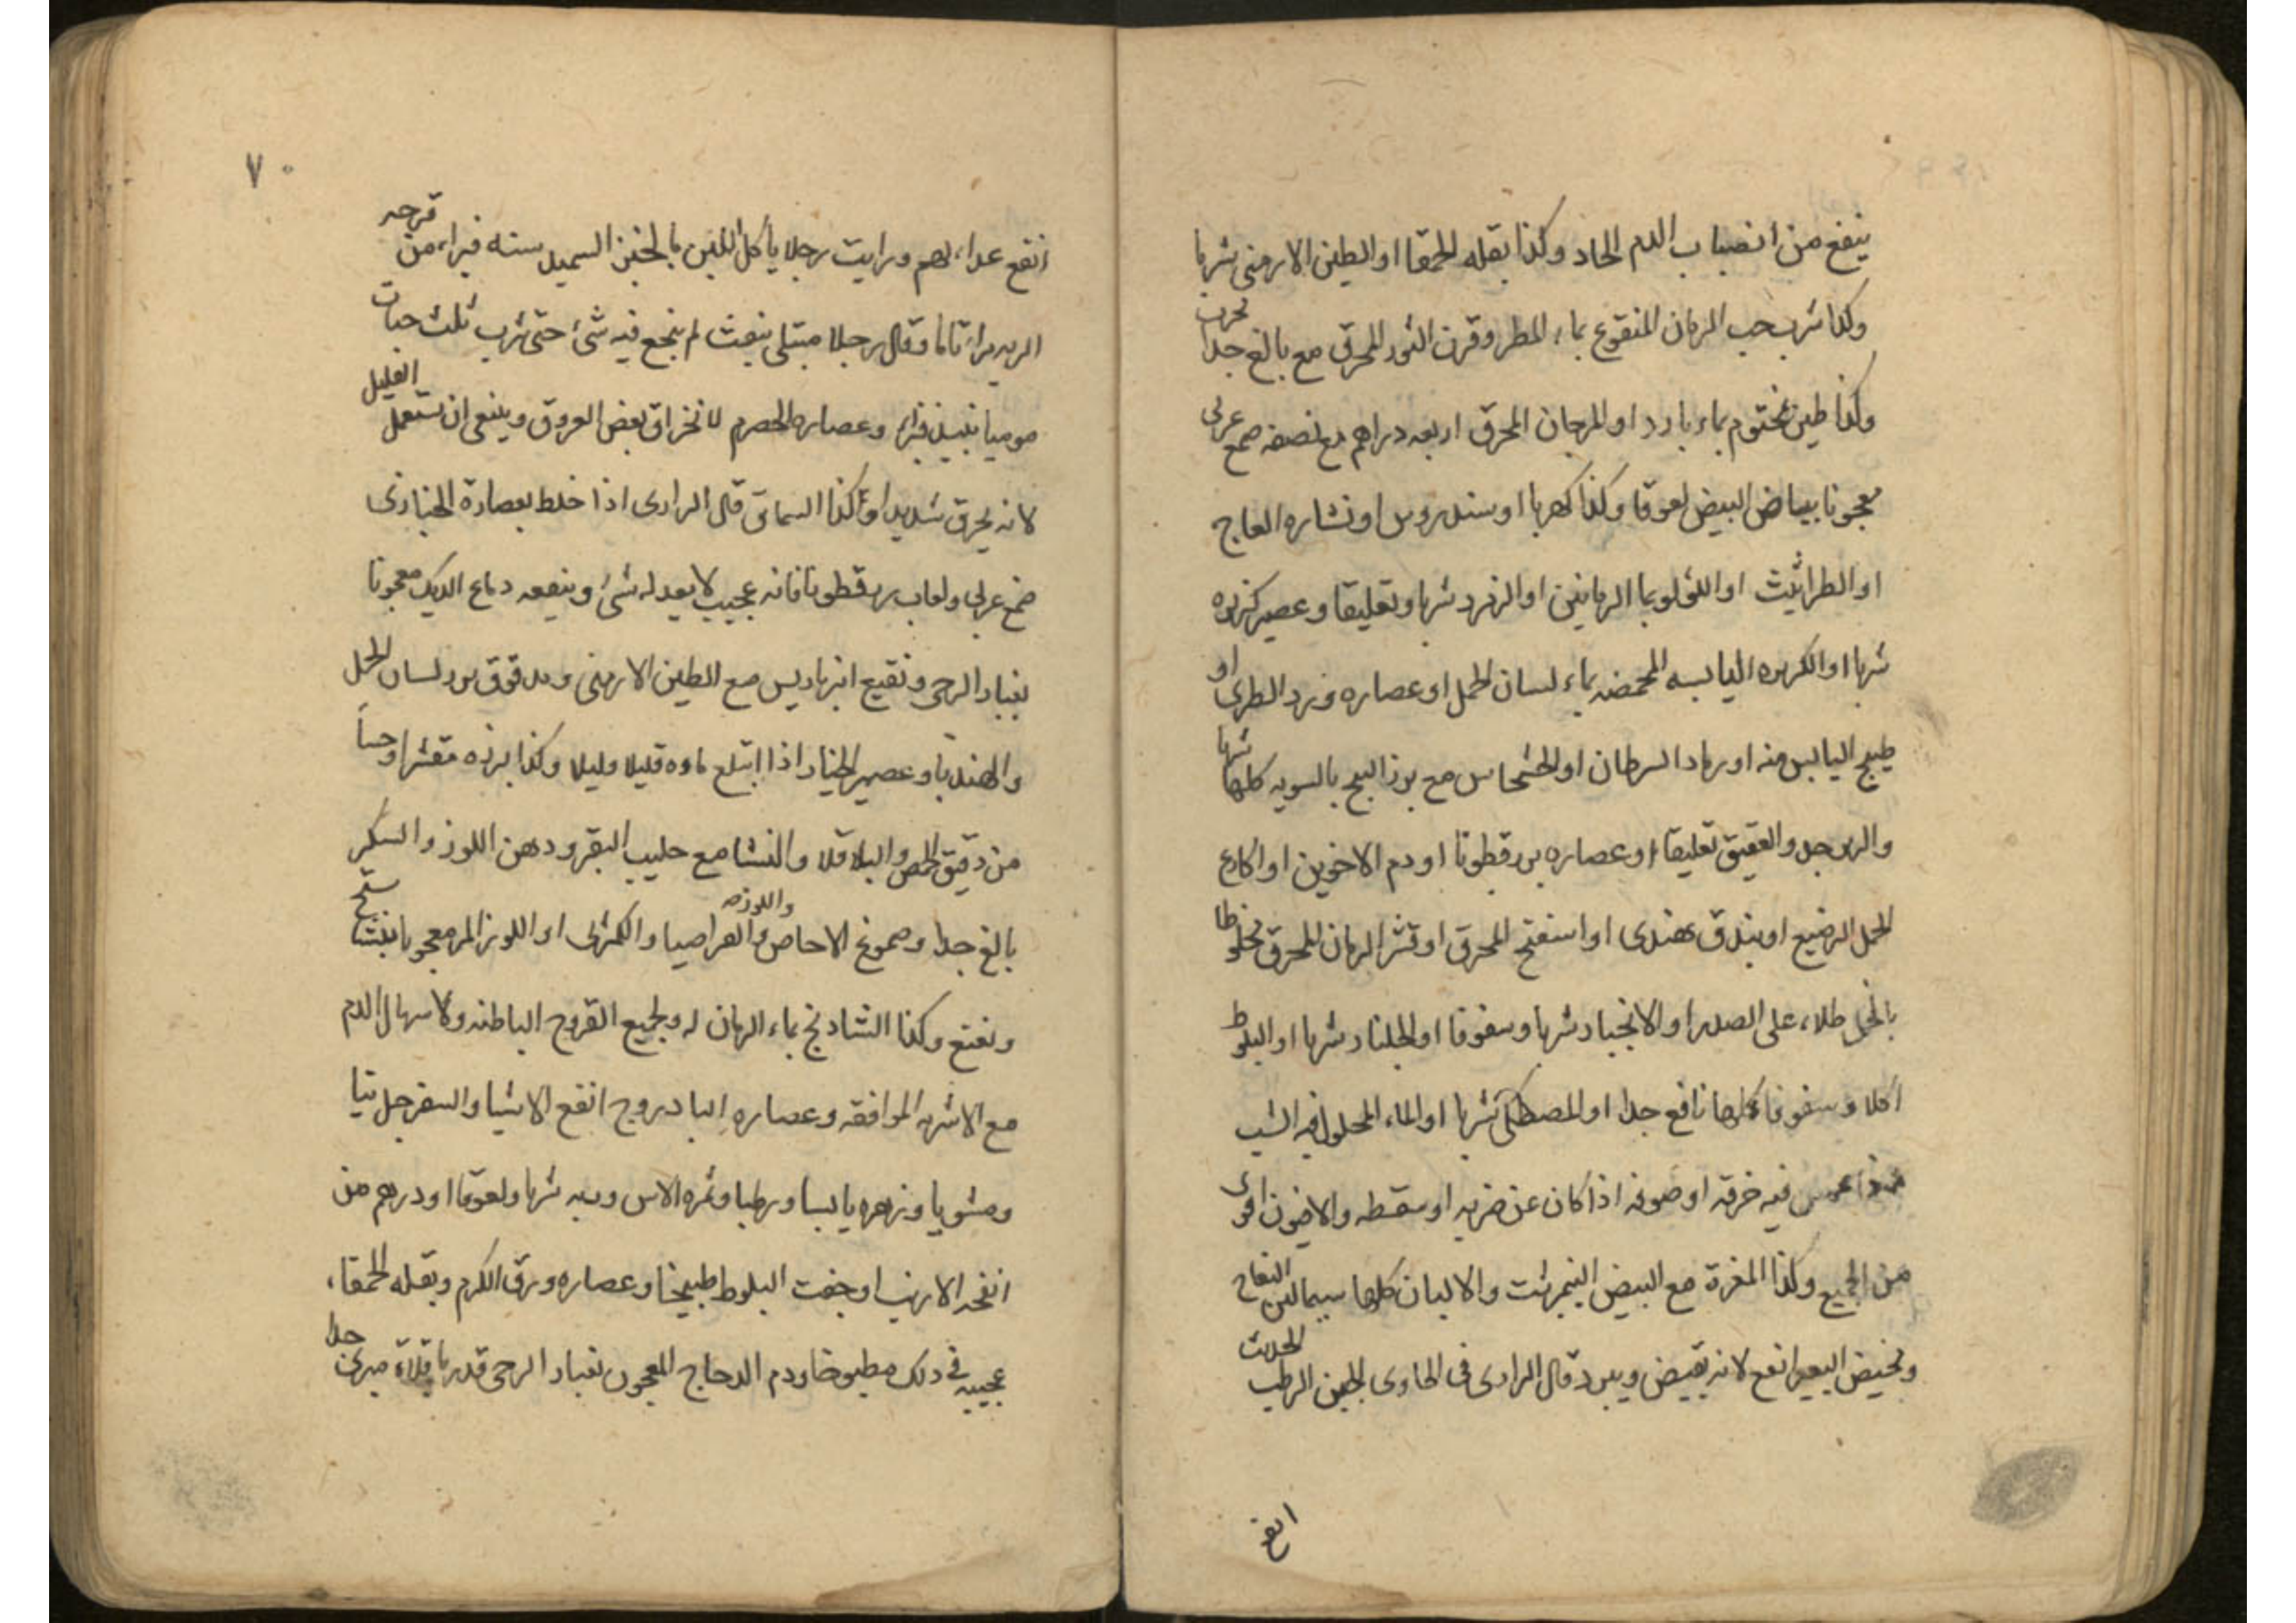 ينفع من انصباب الدم الحاد وكذا بقله الحمقا او الطين الارمنى شربا
وكذا شرب حب الرمان المنقوع بماء المطر وقرن الثور المحرق مع بالغ جدا
وكذا طين مختوم بماء بارد او المرجان المحرق اربعه دراهم مع نصفه صمغ عربى
معجونا ببياض البيض لعوقا وكذا كهربا او سندروس او نشاره العاج
او الطراثيث او اللؤلو بما الرمانين او الزمرد شربا وتعليقا وعصير كزبره
شربا او الكزبره اليابسه المحمضه بماء لسان الحمل او عصاره ورد الطرى او
طبيخ اليابس منه او رماد السرطان او الخشخاس مع بزر البنج بالسويه كلها شربا
والزبرجد والعقيق تعليقا او عصاره بزرقطونا او دم الاخوين او اكارع
الحمل الرضيع او بندق هندى او اسفنج المحرق او قشر الرمان المحرق مخلوطا
بالخل طلاء على الصدر او الانجبار شربا وسفوفا او الجلنار شربا او البلوط
اكلا وسفوفا كلها نافع جدا او المصطكى شربا او الماء المحلول فيه الشب
فيه خرقه او صوفه اذا كان عن ضربه او سقطه والافيون اقوى
من الجميع وكذا المغرة مع البيض النيمرشت والالبان كلها سيما لبن النعاج
ومخيض البقر انفع لانه يقبض ويبرد قال الرازى فى الحاوى الجبن الرطب الحديث
انفع
٧٠
انفع غداء لهم ورايت رجلا ياكل اللبن بالخبز السميد سنه فبراء من قرحه
الريه براء تاما وقال رجلا مبتلى بنفث لم ينجع فيه شئ حتى شرب ثلث حبات
موميا بنبيذ فبراء وعصاره الحصرم لانخراق بعض العروق وينبغى ان يستعمل القليل
لانه يحرق شديدا وكذا السماق قال الرازى اذا خلط بعصارة الخبازى
صمغ عربى ولعاب بزرقطونا فانه عجيب لا يعدله شئ وينفعه دماغ الديك معجونا
بغبار الرحى ونقيع انبرباريس مع الطين الارمنى ومدقوق بزر لسان الحمل
والهندبا وعصير الخيار اذا ابتلع ماوه قليلا قليلا وكذا بزره مقشرا وحسا
من دقيق الحمص والباقلا والنشا مع حليب البقر ودهن اللوز والسكر
بالغ جدا وصموغ الاجاص والقراصيا واللوز والكمثرى او اللوز المر معجونا بنشاستج
ونعنع وكذا الشادنج بماء الرمان له ولجميع القروح الباطنه ولاسهال الدم
مع الاشربه الموافقه وعصاره البادروج انفع الاشيا والسفرجل نيا
ومشويا وزهره يابسا ورطبا وثمره الاس وربه شربا ولعوقا او درهم من
انفحه الارنب او جفت البلوط طبيخا وعصاره ورق الكرم وبقله الحمقاء
عجيبه فى ذلك مطبوخا ودم الدجاج المعجون بغبار الرحى قدر باقلاة مبرئ جدا